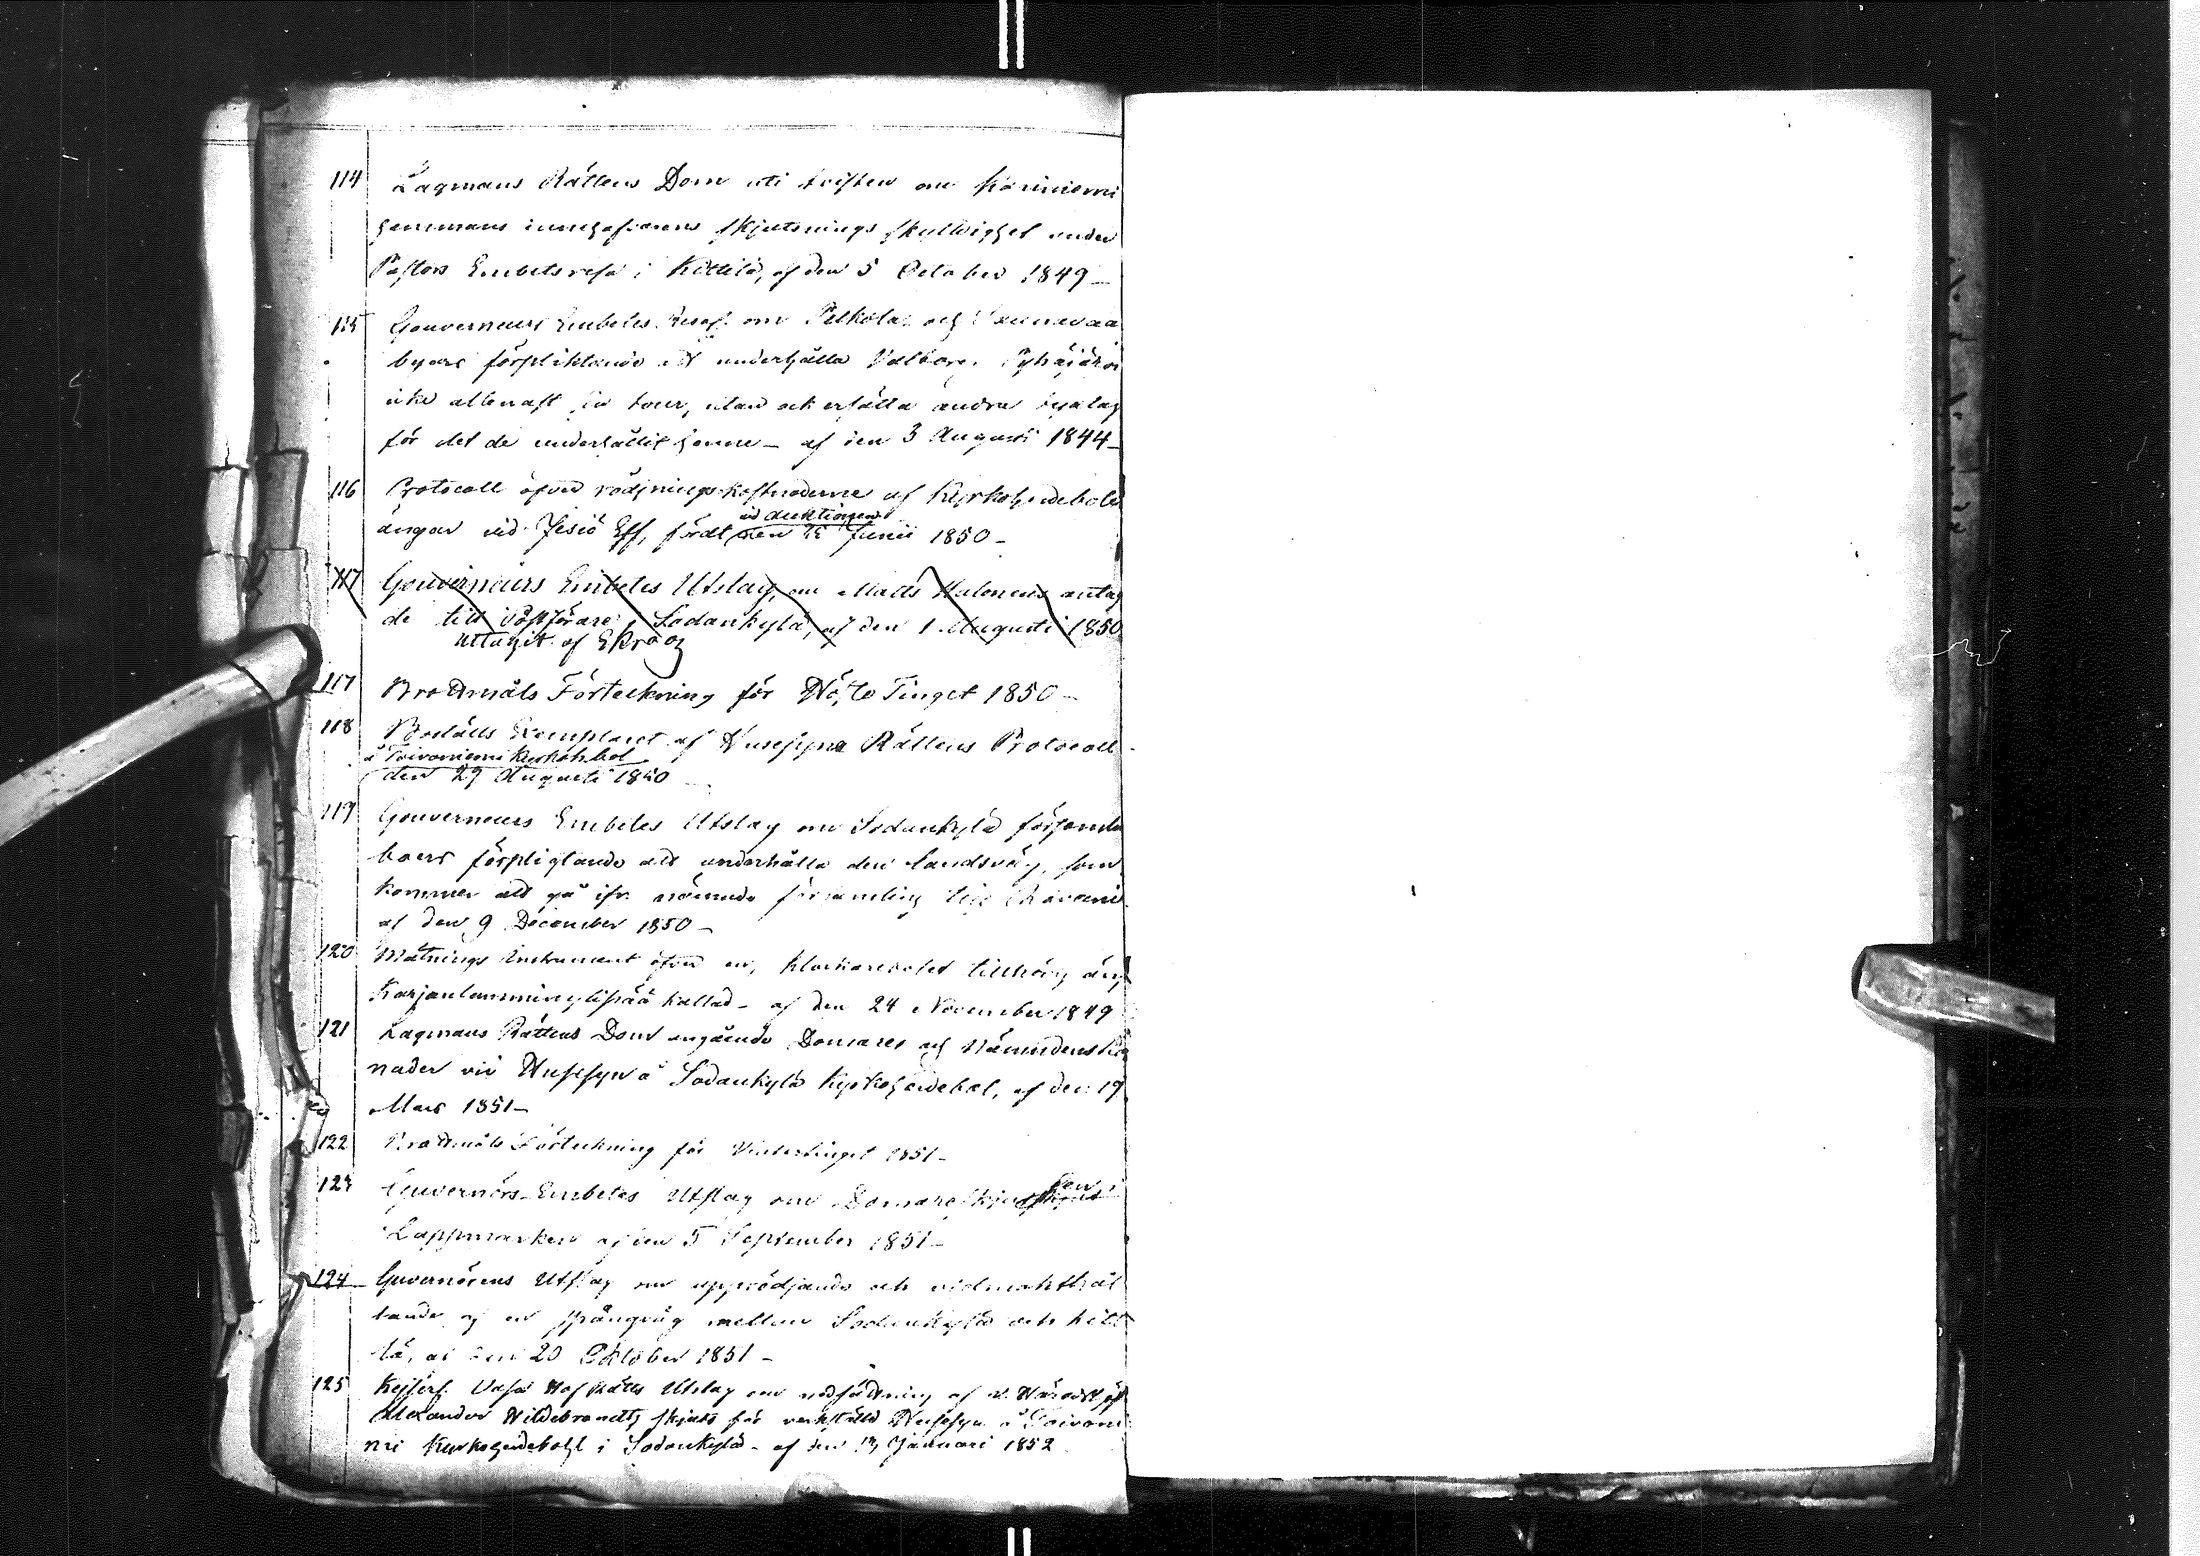 114 Lagmans Rättens Dom uti tvisten om Kariniemi
hemmans innehafvarens skjutsnings skyldighet under
Pastors Embetsresa i Kittilä, af den 5 October 1849 –
115 Gouverneurs Embetes Resol. om Pelkola och
byars förpliktande att underhålla Valborg Pyhäjärvi
icke allenast tour, utan ock ersätta andra byalag
för det de underhållit henne – af den 3 Augusti 1844 –
116 Protocoll öfver rödjningskostnaderne af Kyrkoherdebols
ängar vid Jesiö Elf, fördt vid auktionen den Junii 1850 –
117 Gouverneurs Embetes Utslag, om Matts Halonens antag
de till Postförare i Sodankylä, af den 1 Augusti 1850
uttagit af Ekroos
117 Brottmåls Förteckning för Höste Tinget 1850 –
118 Boställs Exemplaret af Husesyns Rättens Protocoll
å Toivoniemi Kyrkoh.bol
den 29 Augusti 1850
119 Gouverneurs Embetes Utslag om Sodankylä församl
boers förpligtande att underhålla den landsväg, som
kommer att gå ifr. nämnde församling till Rovani
af den 9 December 1850 –
120 Mätnings Instrument öfver en, Klockarebolet tillhörig äng
Karjanlamminylipää kallad – af den 24 November 1849
121 Lagmans Rättens Dom angående Domares och Nämndens kost
nader vid Husesyn å Sodankylä Kyrkoherdebol, af den 19
Mars 1851 –
122 Brottmåls Förteckning för Vintertinget 1851 –
123 Guvernörs-Embetes Utslag om Domareskjutsen i
Lappmarken af den 5 September 1851 –
124 Guvernörens Utslag om upprödjande och vidmakthål
lande af en sprängväg mellan Sodankylä och Kitt
lä, af den 20 Oktober 1851 –
125 Kejserl. Vasa Hof Rätts Utslag om afd. Häradshöfd
Alexander Hildebrandts skjuts för verkställd Husesyn å Toivoni
mi Kyrkoherdebohl i Sodankylä – af den 13 Januari 1852